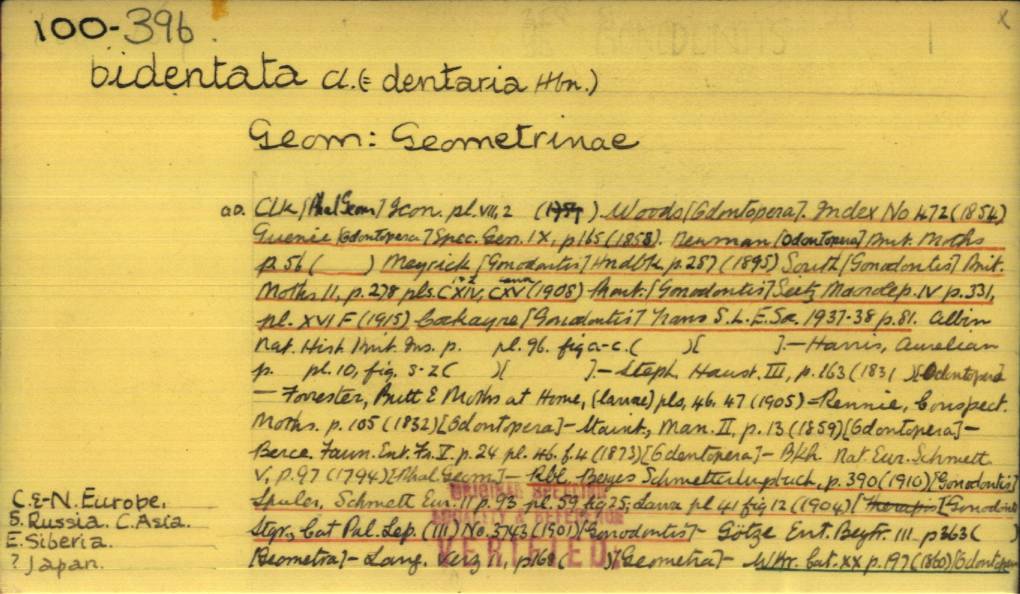 100-396.
GONODONTIS 1
bidentata Cl. (= dentaria Hbn.)
Geom: Geometrinae
ao. Clk [Phal Geom] Icon. pl. VII, 2 (1759). Woods [Odontopera]. Index No 472 (1854)
Guenée [Odontopera] Spec. Gen. IX, p165 (1858). Newman [Odontopera] Brit. Moths
p 56 ( ) Meyrick [Gonodontis] Hndbk p. 287 (1895) South [Gonodontis] Brit.
Moths. II, p. 278 pls. CXIV, CXV (1908) Prout. [Gonodontis] Seitz Macrolep. IV p. 331,
pl. XVI F (1915) Cockayne [Gonodontis] Trans S.L.E.Soc. 1937-38 p. 81. Albin
Nat. Hist Brit. Ins. p. pl. 96. fig a-c. ( )[ ].— Harris, Aurelian
p. pl. 10, fig. s-z ( )[ ].— Steph. Haust. III, p. 163 (1831 )[Odontopera
— Forrester, Butt & Moths at Home, (larvae) pls, 46. 47 (1905) — Rennie, Conspect.
Moths. p. 105 (1832) [Odontopera] — Staint., Man. II, p. 13 (1859) [Odontopera] —
Berce. Faun. Ent. Fr. V. p. 24 pl. 46. f. 4 (1873) [Odontopera] — Bkh. Nat Eur. Schmett
V, p. 97 (1794) [Phal Geom] — Rbl. Berges Schmetterlingsbuch, p. 390 (1910) [Gonodontis]
Spuler, Schmett Eur. II p. 93 pl. 59 fig 25; Larva pl 41 fig 12 (1904) [Therapis] [Gonodontis
Stgr., Cat Pal. Lep. (III) No. 3743 (1901) [Gonodontis] — Götze Ent. Beytr. III. p363 ( )
[Geometra] — Lang. Verz II. p168 ( )[Geometra] — Wkr. Cat. XX p. 197 (1860) [Odontopera
C. & N. Europe.
S. Russia. C. Asia.
E. Siberia.
? Japan.
VERIFIED.